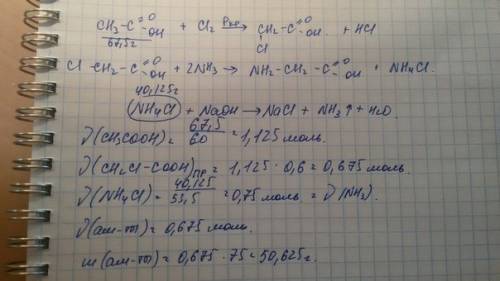 CH₃-C(=O)OH + Cl₂ Ркр→ CH₂-C(=O)OH + HCl
67,5г Cl
Cl-CH₂-C(=O)OH + 2NH₃ → NH₂-CH₂-C(=O)OH + NH₄Cl.
40,125г
NH₄Cl + NaOH → NaCl + NH₃↑ + H₂O
ν(CH₃COOH) = 67,5/60 = 1,125 моль.
ν(CH₂Cl-COOH)пр = 1,125 · 0,6 = 0,675 моль.
ν(NH₄Cl) = 40,125/53,5 = 0,75 моль = ν(NH₃).
ν(ам-ты) = 0,675 моль.
m(ам-ты) = 0,675 · 75 = 50,625г.